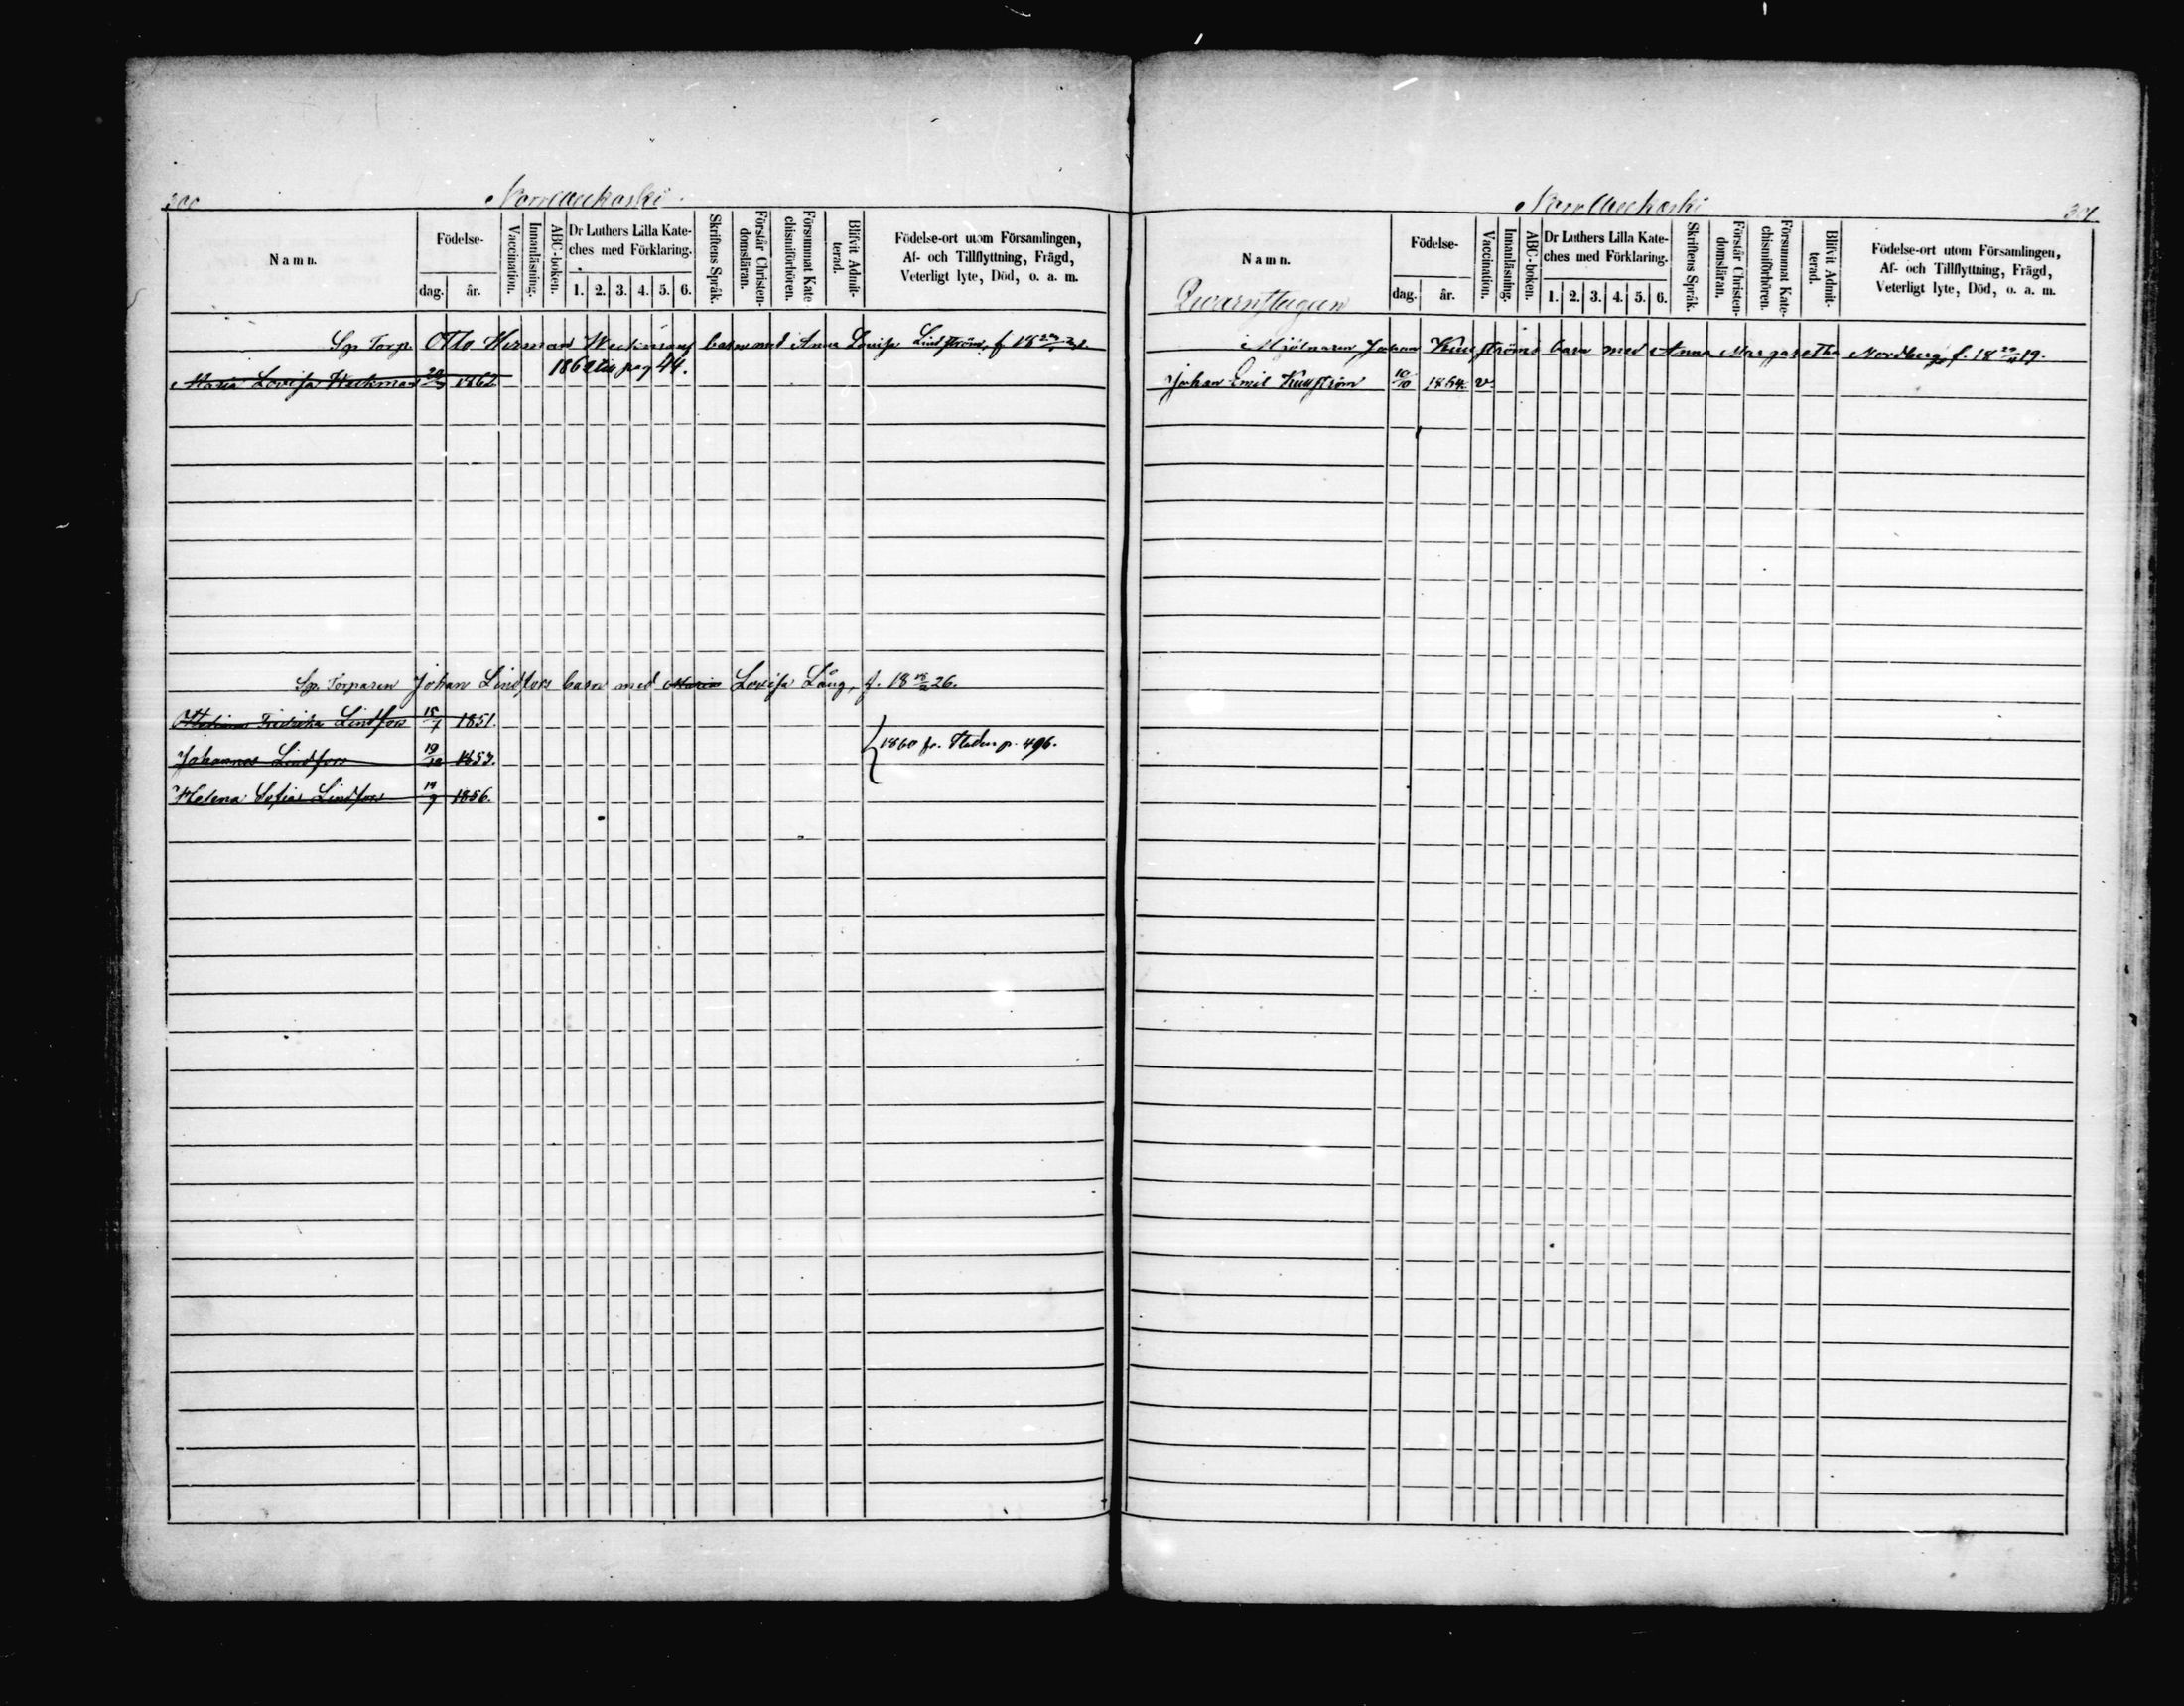 300
Namn.
Födelse-
dag. år.
Vaccination.
Innanläsning.
ABC-boken.
Dr Luthers Lilla Kate-
ches med Förklaring.
1. 2. 3. 4. 5. 6.
Skriftens Språk.
Förstår Christen-
domsläran.
Försummat Kate-
chismiförhören.
Blifvit Admit-
terad.
Födelse-ort utom Församlingen,
Af- och Tillflyttning, Frägd,
Veterligt lyte, Död, o. a. m.
Otto Herman barn med Anna Lovisa Lindström, f.
Maria Lovisa Weckman 1862
1862 till pag 44.
Torparen Johan Lindfors barn med Maria Lovisa Lång, f. 18 26.
Fredrika Lindfors 15/7 1851.
Johannes Lindfors 19/10 1853.
1860 fr. p. 496.
Helena Sofia Lindfors 1856.
301
Namn.
Födelse-
dag. år.
Vaccination.
Innanläsning.
ABC-boken.
Dr Luthers Lilla Kate-
ches med Förklaring.
1. 2. 3. 4. 5. 6.
Skriftens Språk.
Förstår Christen-
domsläran.
Försummat Kate-
chismiförhören.
Blifvit Admit-
terad.
Födelse-ort utom Församlingen,
Af- och Tillflyttning, Frägd,
Veterligt lyte, Död, o. a. m.
Mjölnaren Johan barn med Anna Margaretha Nordberg, f. 18 19.
Johan Emil 10/10 1854. v.